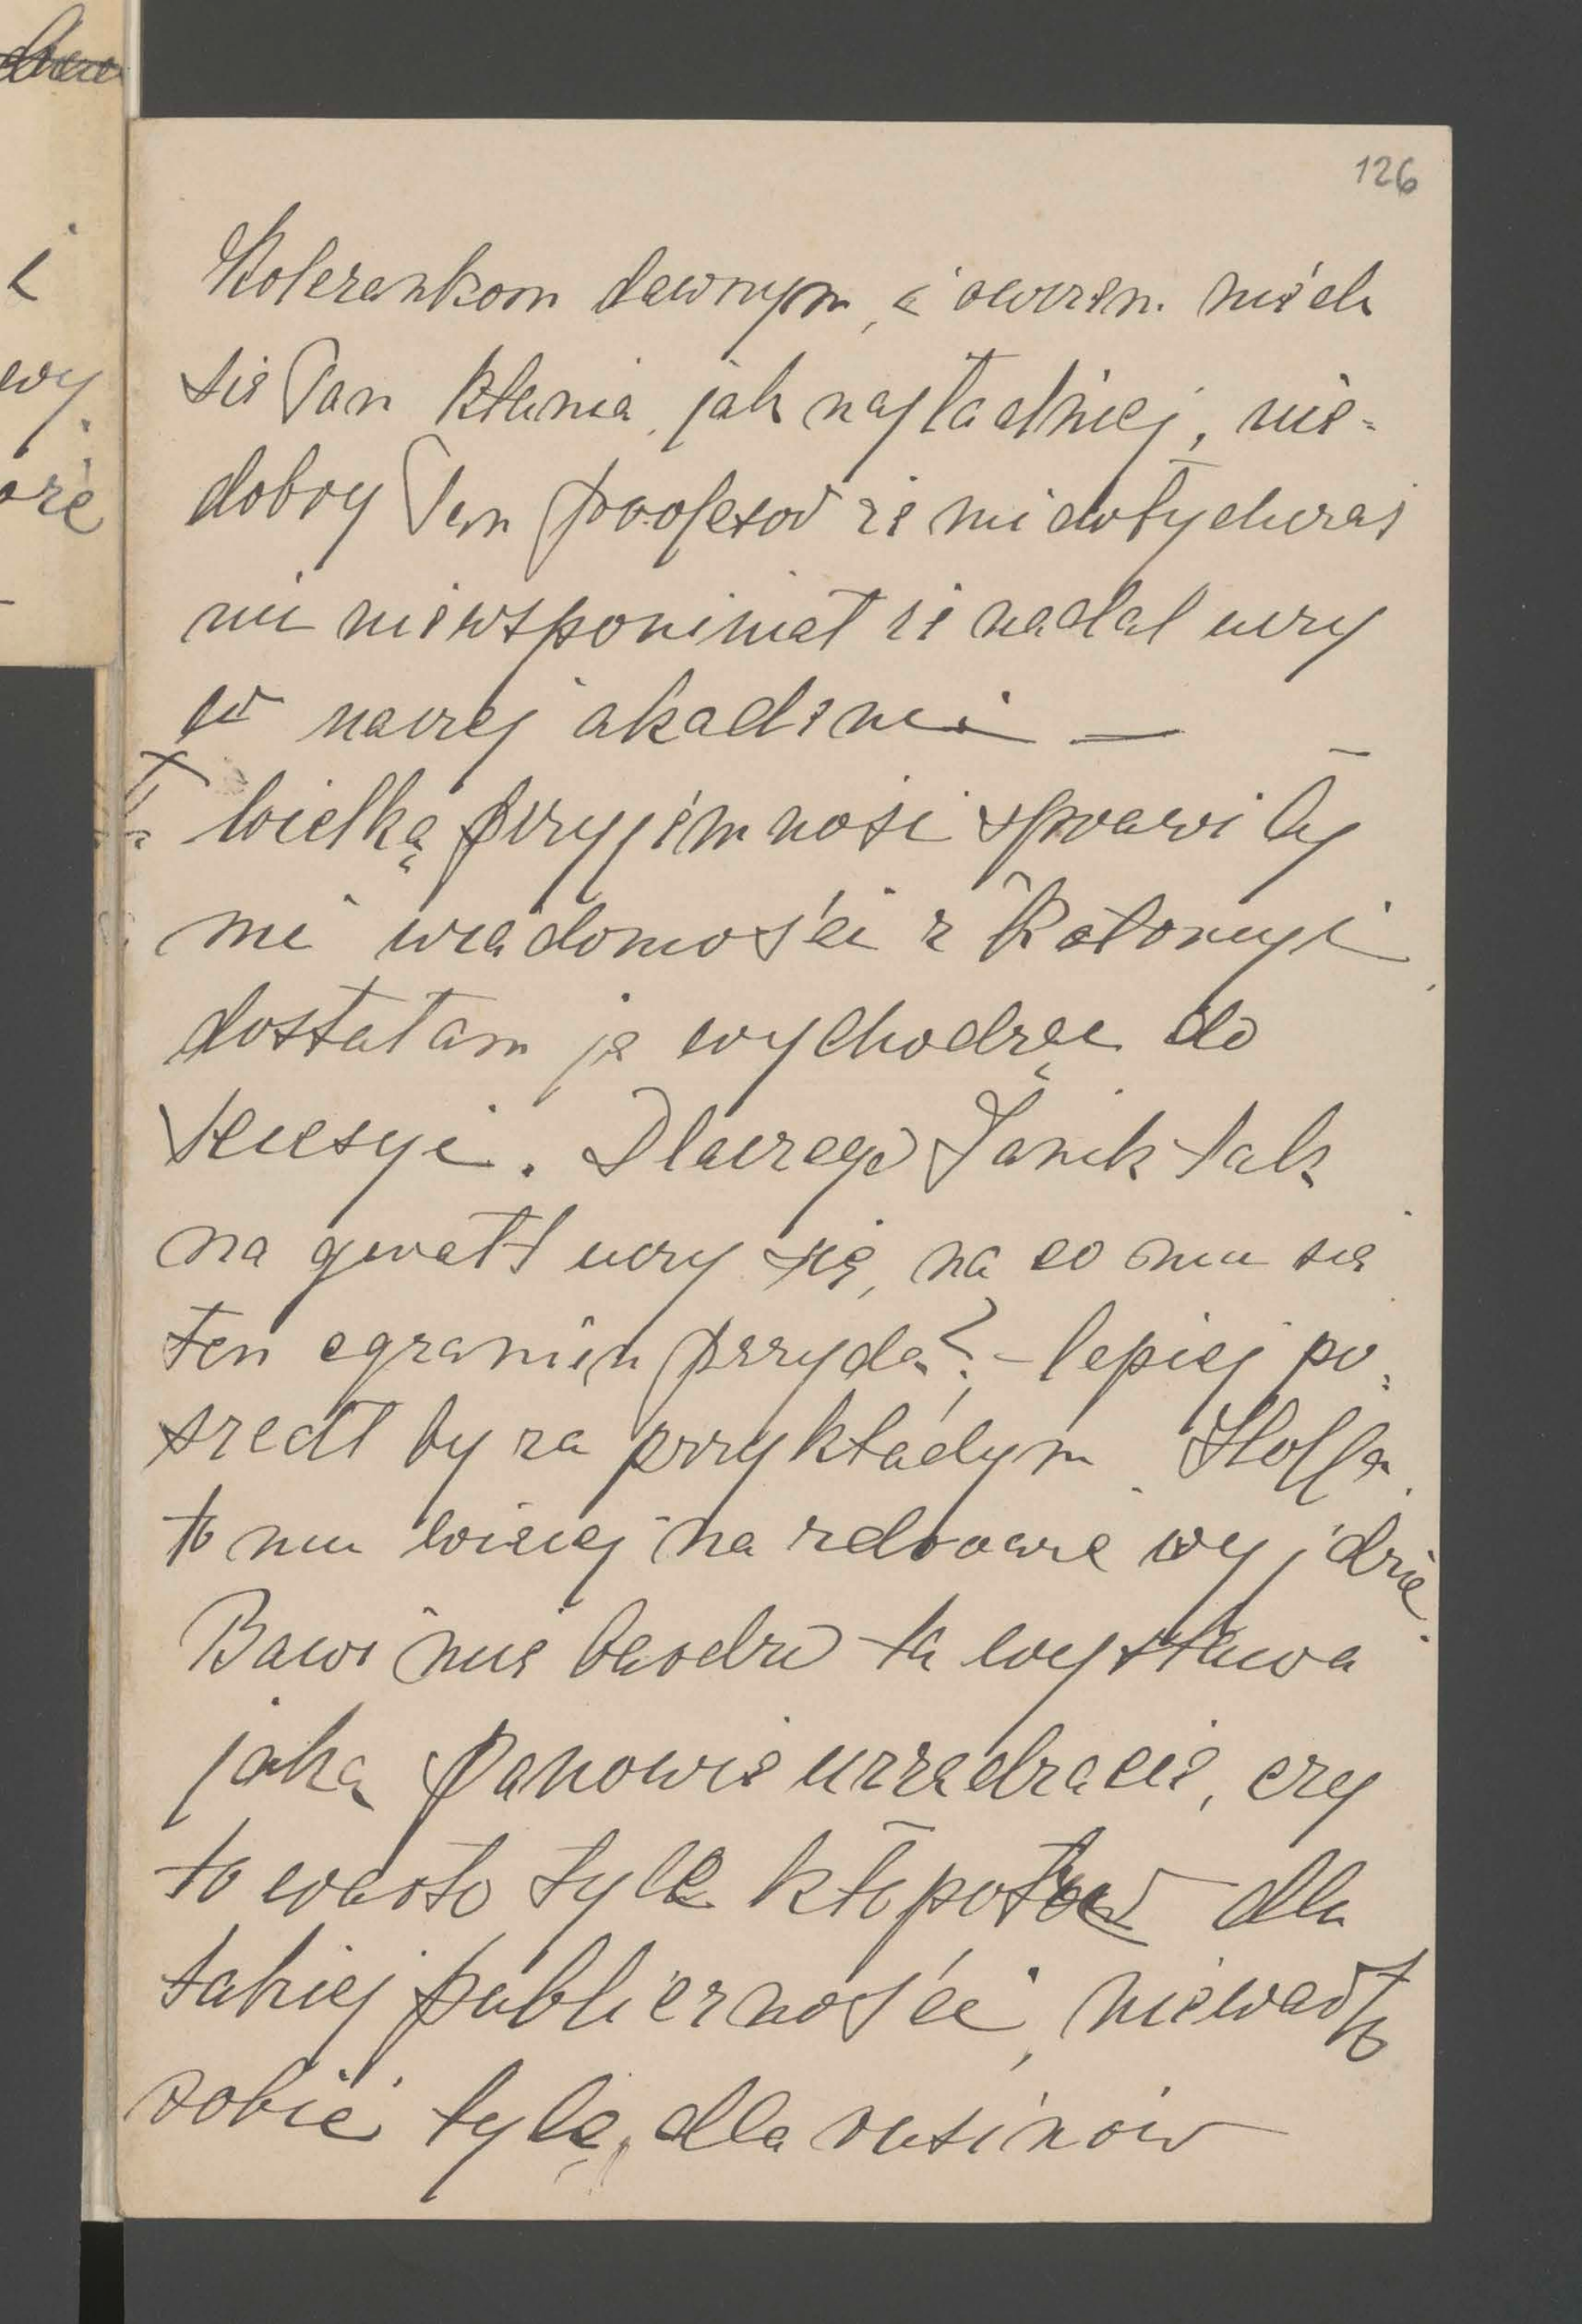 126
Koleżankom dawnym, i owszem niech
się Pan kłania jak najładniej, nie-
dobry Pan profesor że mi dotychczas
nic nie wspominał że nadal uczy
w naszej akademii —
Wielką przyjemność sprawiły
mi wiadomości z Kołomyi
dostałam je wychodząc do
Secesyi. Dlaczego Janik tak
na gwałt uczy się, na co mu się
ten egzamin przyda? – lepiej po-
szedł by za przykładym Hoffa
to mu więcej na zdrowie wyjdzie.
Bawi mię bardzo ta wystawa
jaką Panowie urządzacie, czy
to warto tyle kłopotów dla
takiej publiczności, niewarto
robić tyle, dla rusinów